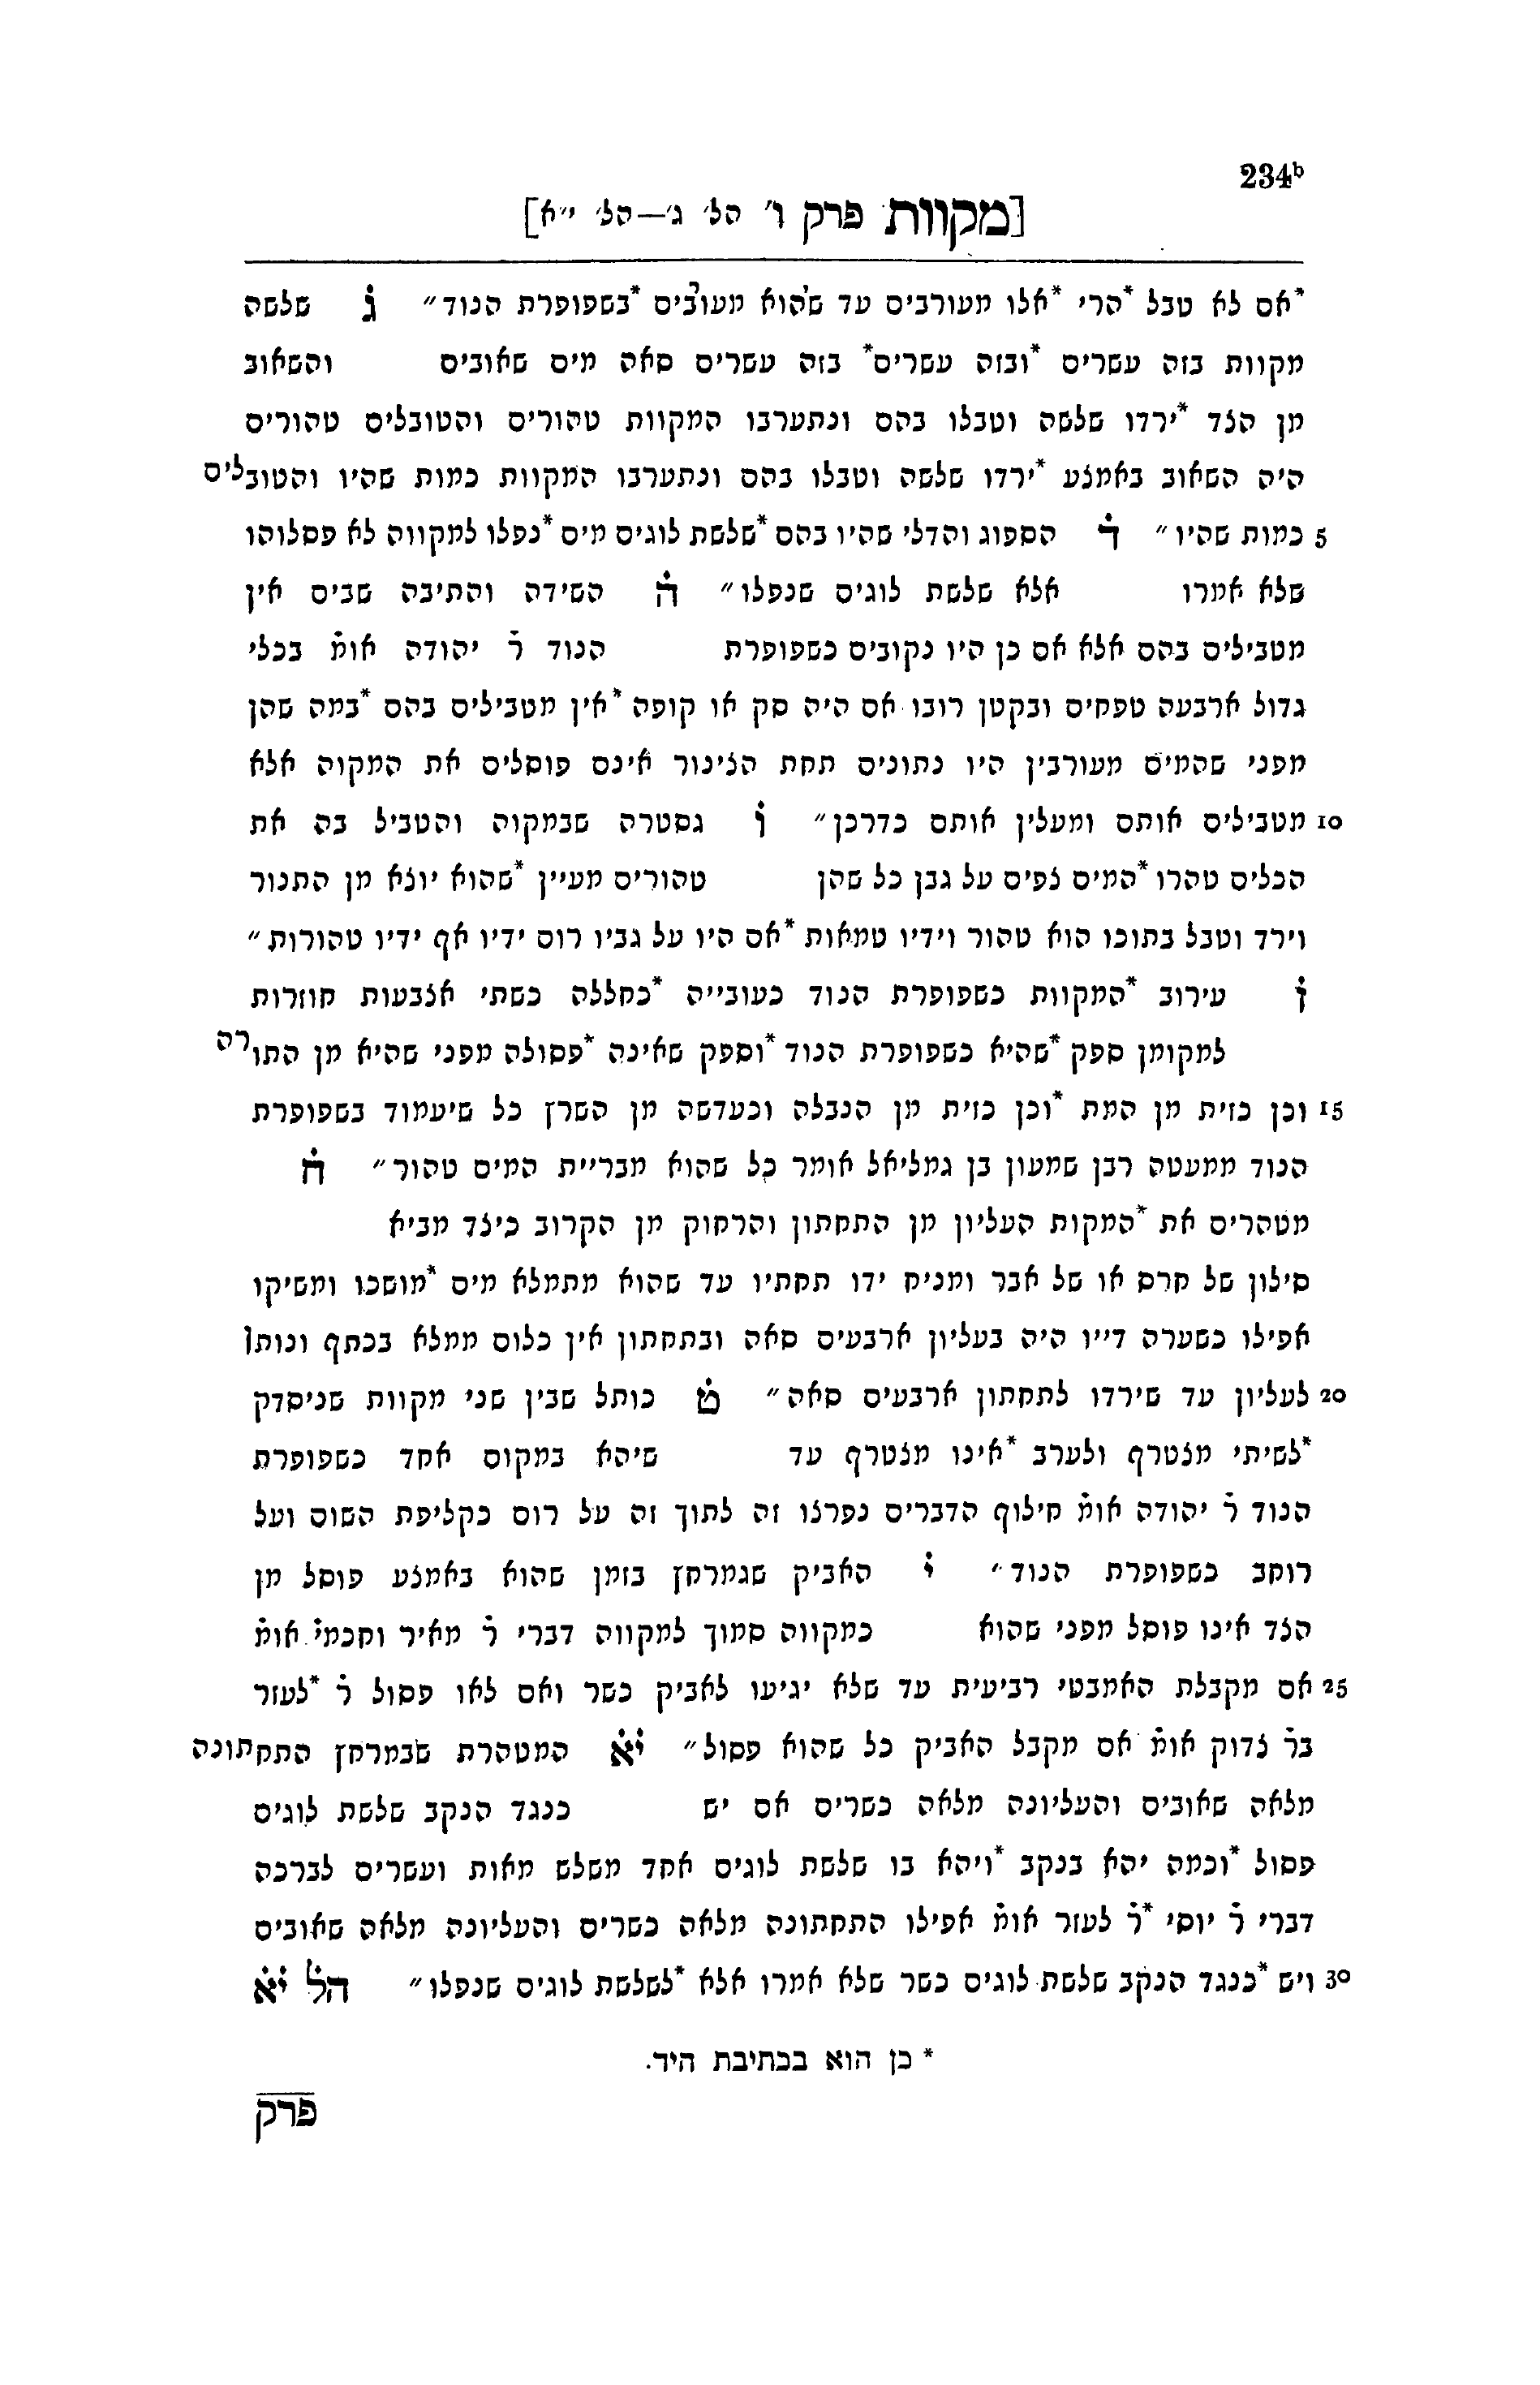 234ᵇ
[מקוות פרק ו׳ הל׳ ג׳—הל׳ י״א]
*אם לא טבל *הרי *אלו מעורבים עד שהוא מעורבים *בשפופרת הנוד״ ג שלשה
מקוות בזה עשרים *ובזה עשרים* בזה עשרים סאה מים שאובים והשאוב
מן הצד *ירדו שלשה וטבלו בהם ונתערבו המקוות טהורים והטובלים טהורים
היה השאוב באמצע *ירדו שלשה וטבלו בהם ונתערבו המקוות כמות שהיו והטובלים
5 כמות שהיו״ ד הספוג והדלי שהיו בהם *שלשת לוגים מים *נפלו למקווה לא פסלוהו
שלא אמרו אלא שלשת לוגים שנפלו״ ה השידה והתיבה שבים אין
מטבילים בהם אלא אם כן היו נקובים כשפופרת הנוד ר̇ יהודה אומ̇ בכלי
גדול ארבעה טפחים ובקטן רובו אם היה סק או קופה *אין מטבילים בהם *במה שהן
מפני שהמים מעורבין היו נתונים תחת הצינור אינם פוסלים את המקוה אלא
10 מטבילים אותם ומעלין אותם כדרכן״ ו גסטרה שבמקוה והטביל בה את
הכלים טהרו *המים צפים על גבן כל שהן טהורים מעיין *שהוא יוצא מן התנור
וירד וטבל בתוכו הוא טהור וידיו טמאות *אם היו על גביו רום ידיו אף ידיו טהורות״
ז עירוב *המקוות כשפופרת הנוד כעובייה *כחללה כשתי אצבעות חוזרות
למקומן ספק *שהיא כשפופרת הנוד *וספק שאינה *פסולה מפני שהיא מן התורה
15 וכן כזית מן המת *וכן כזית מן הנבלה וכעדשה מן השרץ כל שיעמוד בשפופרת
הנוד ממעטה רבן שמעון בן גמליאל אומר כל שהוא מבריית המים טהור״ ח
מטהרים את *המקות העליון מן התחתון והרחוק מן הקרוב כיצד מביא
סילון של חרס או של אבר ומניח ידו תחתיו עד שהוא מתמלא מים *מושכו ומשיקו
אפילו כשערה דייו היה בעליון ארבעים סאה ובתחתון אין כלום ממלא בכתף ונותן
20 לעליון עד שירדו לתחתון ארבעים סאה״ ט כותל שבין שני מקוות שניסדק
*לשיתי מצטרף ולערב *אינו מצטרף עד שיהא במקום אחד כשפופרת
הנוד ר̇ יהודה אומ̇ חילוף הדברים נפרצו זה לתוך זה על רום כקליפת השום ועל
רוחב כשפופרת הנוד״ י האביק שגמרחץ בזמן שהוא באמצע פוסל מן
הצד אינו פוסל מפני שהוא כמקווה סמוך למקווה דברי ר̇ מאיר וחכמי̇ אומ̇
25 אם מקבלת האמבטי רביעית עד שלא יגיעו לאביק כשר ואם לאו פסול ר̇ *לעזר
בר̇ צדוק אומ̇ אם מקבל האביק כל שהוא פסול״ יא המטהרת שבמרחץ התחתונה
מלאה שאובים והעליונה מלאה כשרים אם יש כנגד הנקב שלשת לוגים
פסול *וכמה יהא בנקב *ויהא בו שלשת לוגים אחד משלש מאות ועשרים לברכה
דברי ר̇ יוסי *ר̇ לעזר אומ̇ אפילו התחתונה מלאה כשרים והעליונה מלאה שאובים
30 ויש *כנגד הנקב שלשת לוגים כשר שלא אמרו אלא *לשלשת לוגים שנפלו״ הל̇ יא
* כן הוא בכתיבת היד.
פרק